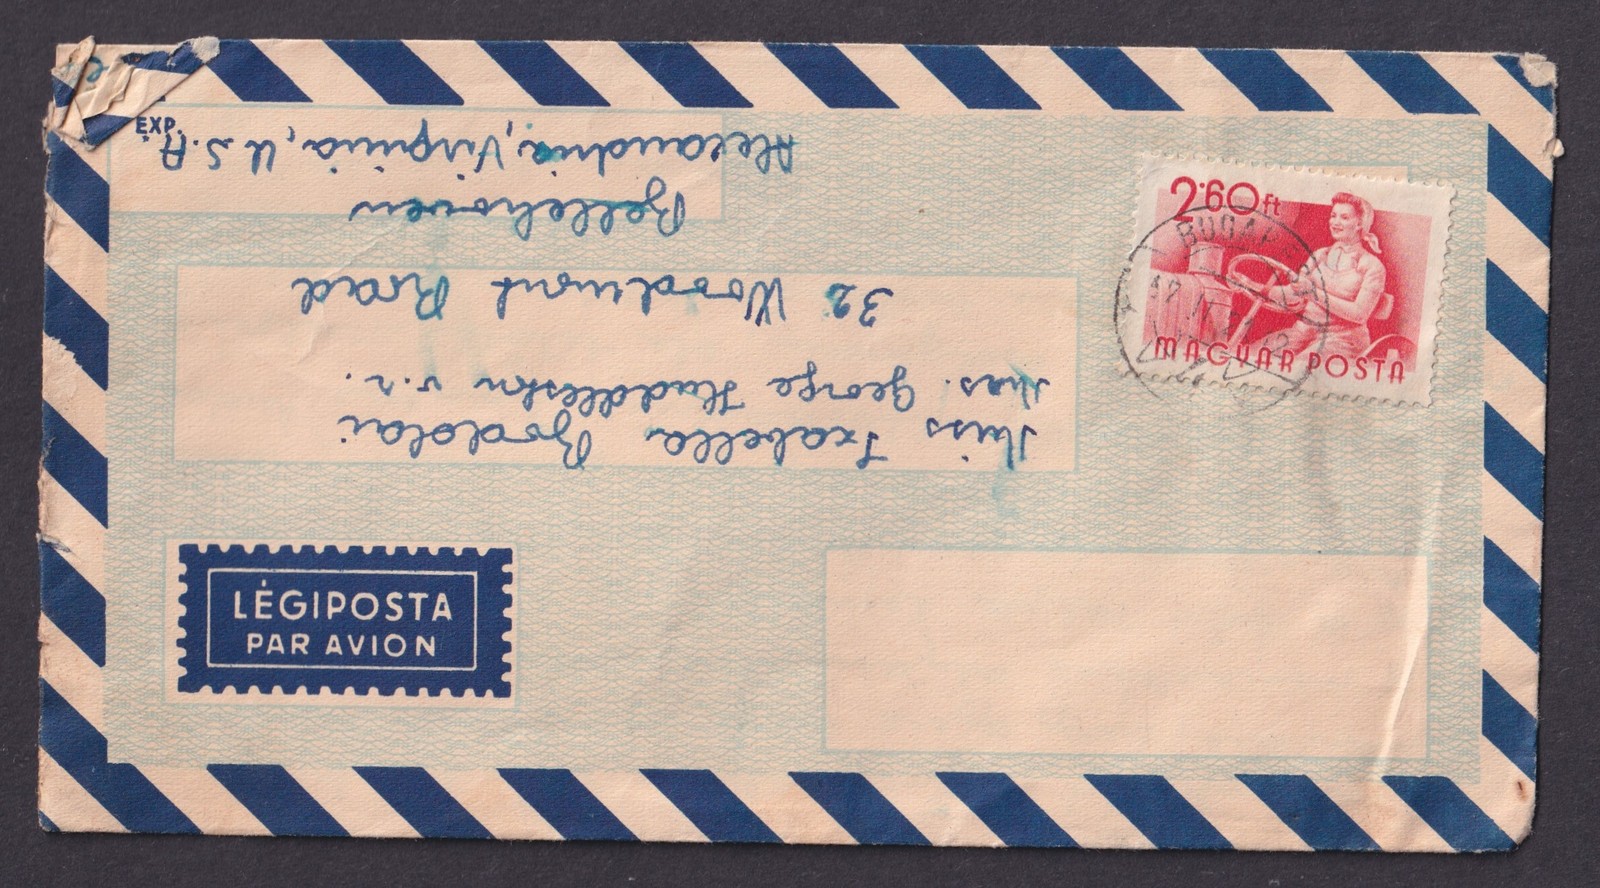 EXP.
2.60 ft
BUDAP
MAGYAR POSTA
Miss Izabella Bodolai
Mrs. George Huddleston v.r.
32 Woodmont Road
Bellehaven
Alexandria, Virginia, U.S.A.
LÉGIPOSTA
PAR AVION